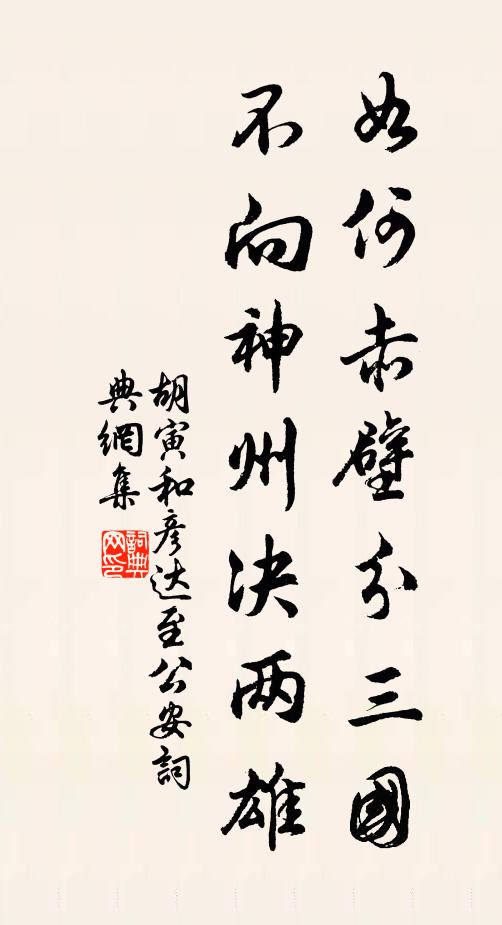 如何赤壁分三國
不向神州决两雄
胡寅和彦达至公安詞
典網集
詞典
网印